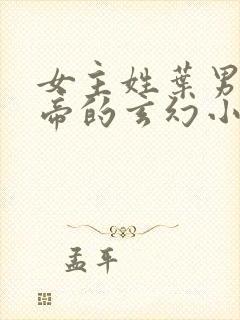 女主姓葉男
帝的玄幻小
孟平